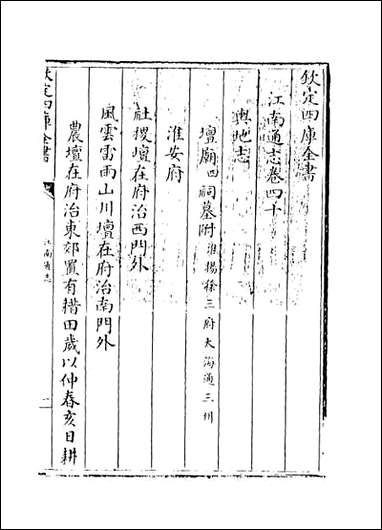 欽定四庫全書
江南通志卷四十
輿地志
壇廟四祠墓附淮揚徐三府太海通三州
淮安府
社稷壇在府治西門外
風雲雷雨山川壇在府治南門外
農壇在府治東郊置有耤田歳以仲春亥日耕
欽定四庫全書
江南通志
一